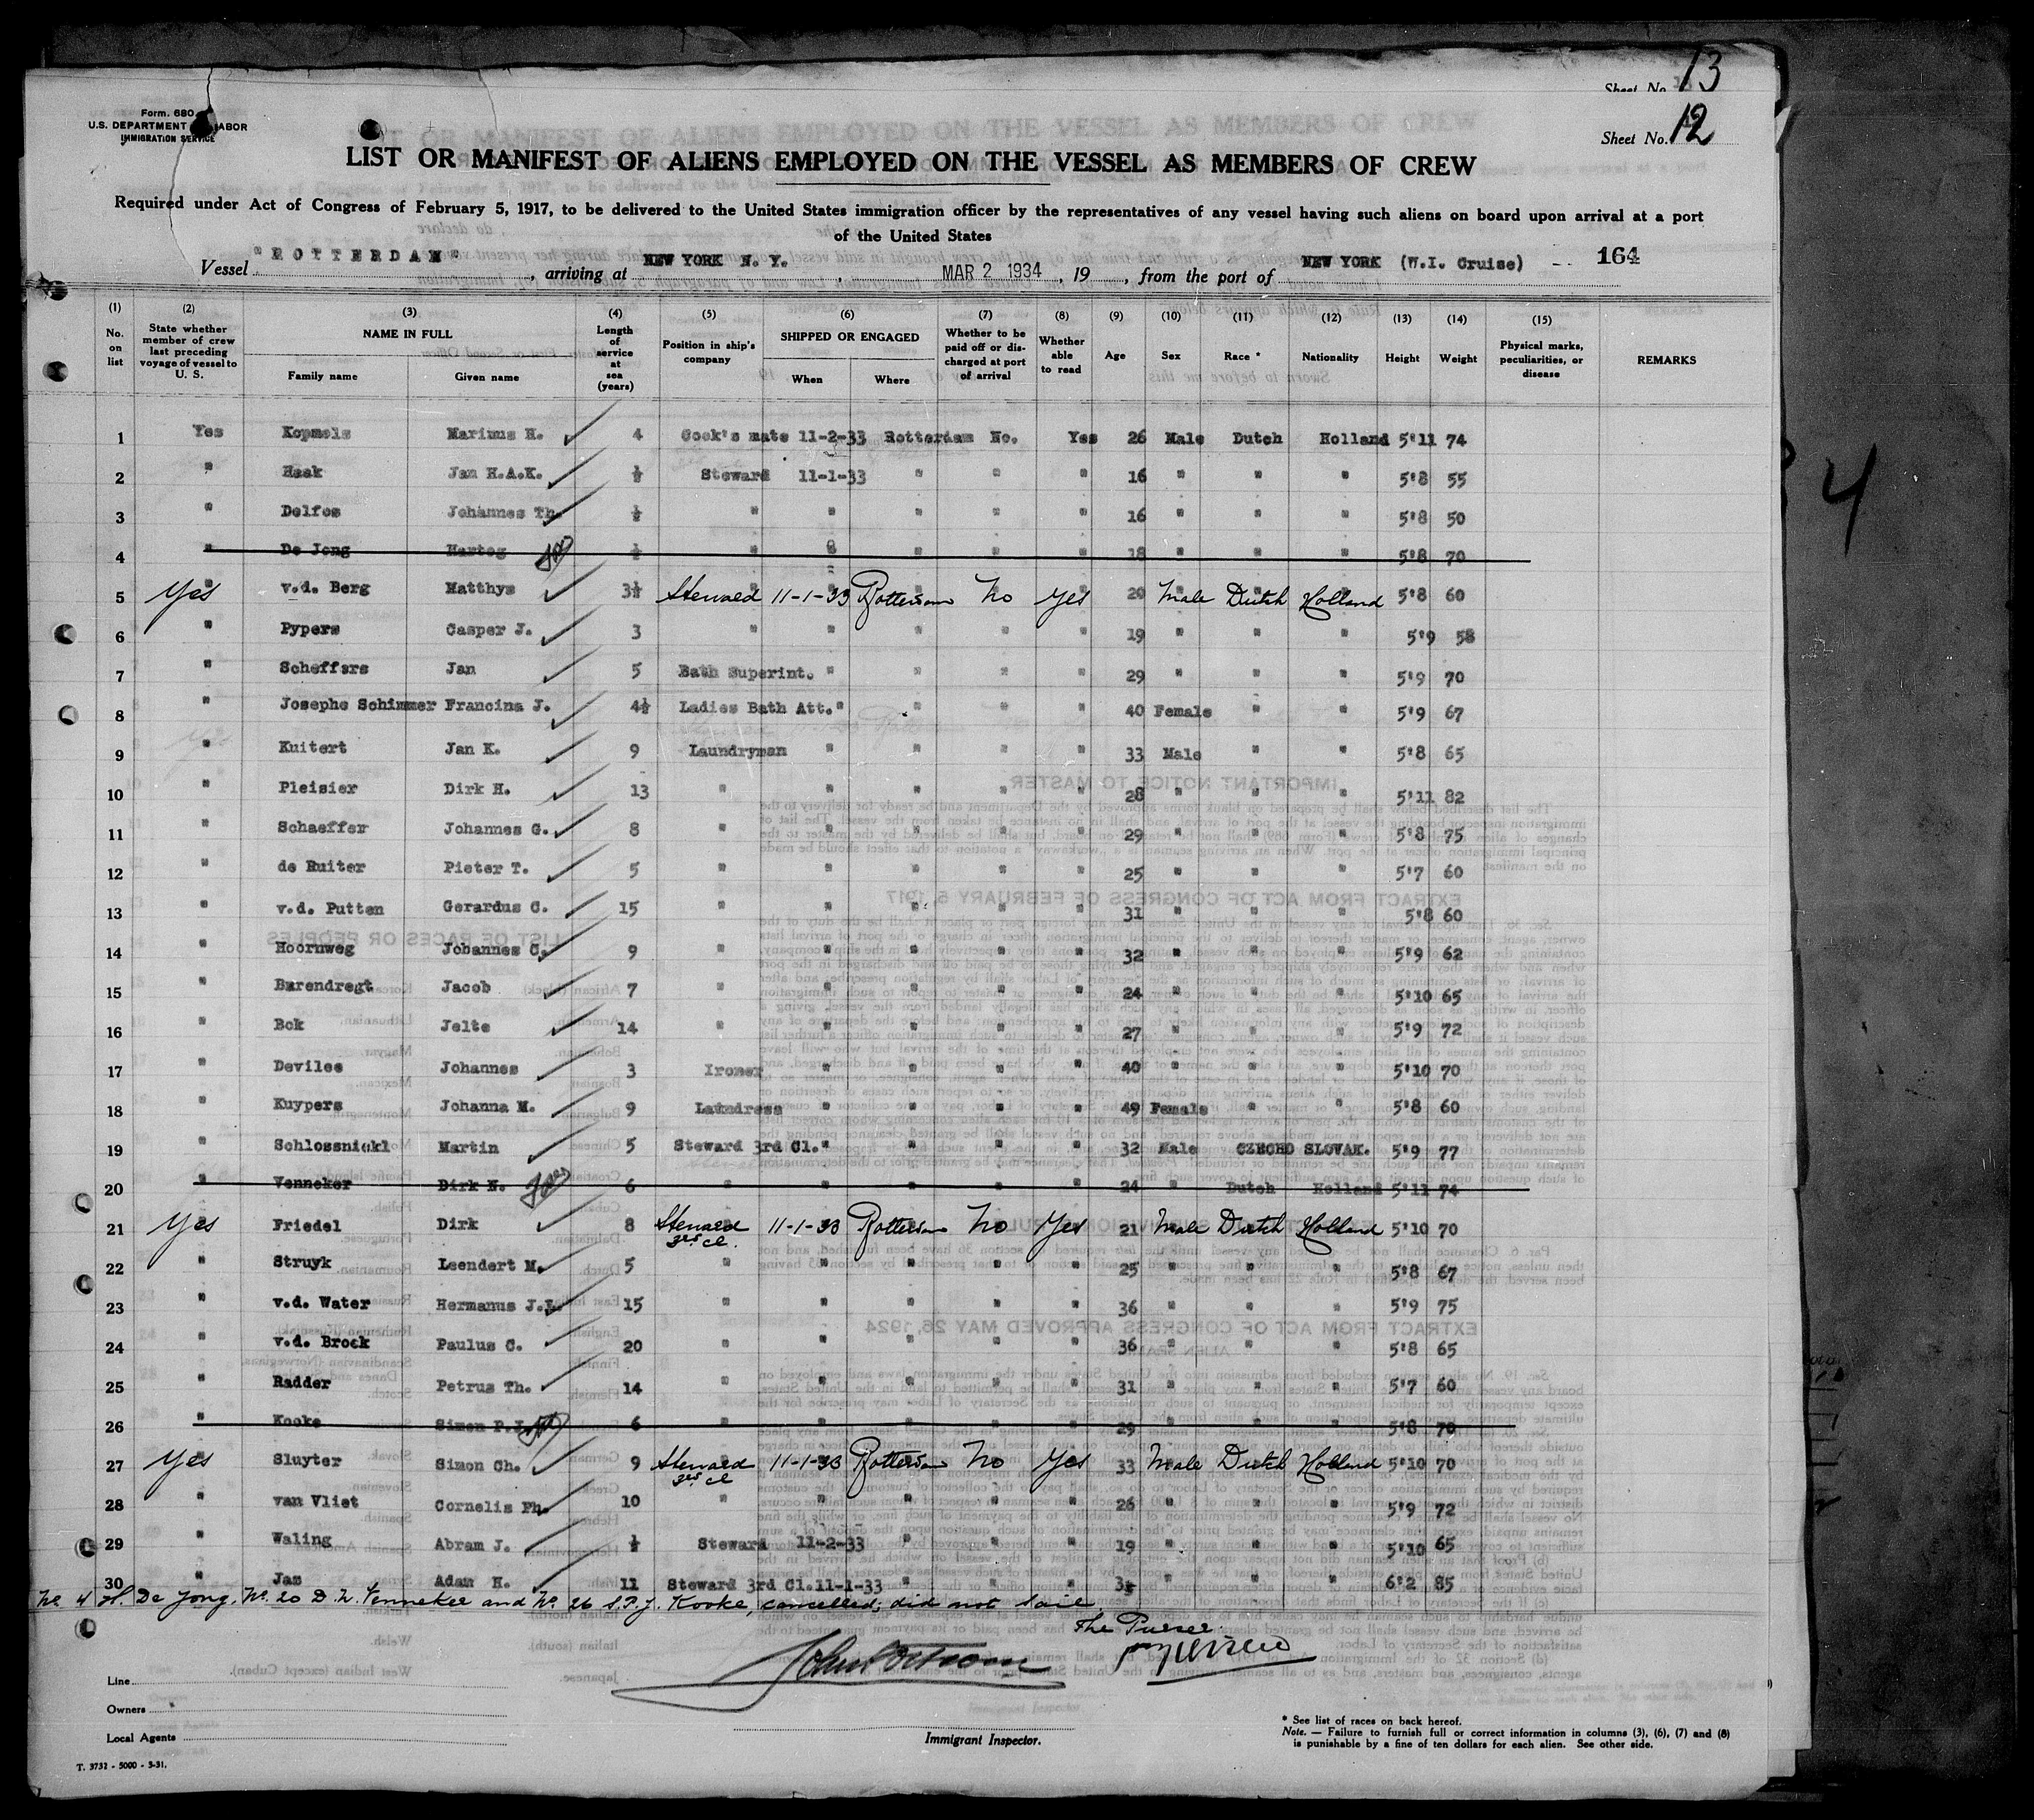 Sheet No. 13
Form. 680
U.S. DEPARTMENT LABOR
IMMIGRATION SERVICE
Sheet No. 12
LIST OR MANIFEST OF ALIENS EMPLOYED ON THE VESSEL AS MEMBERS OF CREW
Required under Act of Congress of February 5, 1917, to be delivered to the United States immigration officer by the representatives of any vessel having such aliens on board upon arrival at a port
of the United States
Vessel "ROTTERDAM", arriving at NEW YORK N.Y., MAR 2 1934, 19, from the port of NEW YORK (W.I. Cruise) -- 164
(1) No. on list (2) State whether member of crew last preceding voyage of vessel to U. S. (3) NAME IN FULL Family name Given name (4) Length of service at sea (years) (5) Position in ship's company (6) SHIPPED OR ENGAGED When Where (7) Whether to be paid off or discharged at port of arrival (8) Whether able to read (9) Age (10) Sex (11) Race * (12) Nationality (13) Height (14) Weight (15) Physical marks, peculiarities, or disease REMARKS
1 Yes Kopmels Marinus H. 4 Cook's mate 11-2-33 Rotterdam No. Yes 26 Male Dutch Holland 5'11 74
2 " Haak Jan H.A.K. ½ Steward 11-1-33 " " " 16 " " " 5'8 55
3 " Delfos Johannes Th. ½ " " " " " 16 " " " 5'8 50
4 " De Jong Hartog ½ " " " " " 18 " " " 5'8 70
5 Yes v.d. Berg Matthys 3½ Steward 11-1-33 Rotterdam No Yes 20 Male Dutch Holland 5'8 60
6 " Pypers Casper J. 3 " " " " " 19 " " " 5'9 58
7 " Scheffers Jan 5 Bath Superint. " " " " 29 " " " 5'9 70
8 " Josephs Schimmer Francina J. 4½ Ladies Bath Att. " " " " 40 Female " " 5'9 67
9 " Kuitert Jan K. 9 Laundryman " " " " 33 Male " " 5'8 65
10 " Pleisier Dirk H. 13 " " " " " 28 " " " 5'11 82
11 " Schaeffer Johannes G. 8 " " " " " 29 " " " 5'8 75
12 " de Ruiter Pieter T. 5 " " " " " 25 " " " 5'7 60
13 " v.d. Putten Gerardus C. 15 " " " " " 31 " " " 5'8 60
14 " Hoornweg Johannes C. 9 " " " " " 32 " " " 5'9 62
15 " Barendregt Jacob 7 " " " " " 24 " " " 5'10 65
16 " Bok Jelte 14 " " " " " 27 " " " 5'9 72
17 " Devilee Johannes 3 Ironer " " " " 40 " " " 5'10 70
18 " Kuypers Johanna M. 9 Laundress " " " " 49 Female " " 5'8 60
19 " Schlossnickl Martin 5 Steward 3rd Cl. " " " " 32 Male CZECHO SLOVAK. 5'9 77
20 " Venneker Dirk N. 6 " " " " " 24 " Dutch Holland 5'11 74
21 Yes Friedel Dirk 8 Steward 3rd cl. 11-1-33 Rotterdam No Yes 21 Male Dutch Holland 5'10 70
22 " Struyk Leendert M. 5 " " " " " 25 " " " 5'8 67
23 " v.d. Water Hermanus J.L. 15 " " " " " 36 " " " 5'9 75
24 " v.d. Brock Paulus C. 20 " " " " " 36 " " " 5'8 65
25 " Radder Petrus Th. 14 " " " " " 31 " " " 5'7 60
26 " Kooke Simon P.J. 6 " " " " " 29 " " " 5'8 70
27 Yes Sluyter Simon Ch. 9 Steward 3rd cl 11-1-33 Rotterdam No Yes 33 Male Dutch Holland 5'10 70
28 " van Vliet Cornelis Ph. 10 " " " " " 26 " " " 5'9 72
29 " Waling Abram J. ½ Steward 11-2-33 " " " 19 " " " 5'10 65
30 " Jas Adam H. 11 Steward 3rd Cl. 11-1-33 " " " " " " 6'2 85
No. 4 H. De Jong, No. 20 D. N. Venneker and No. 26 S.P.J. Kooke, cancelled; did not sail.
The Purser.
Line
Owners
Local Agents
Immigrant Inspector.
* See list of races on back hereof.
Note. — Failure to furnish full or correct information in columns (3), (6), (7) and (8)
is punishable by a fine of ten dollars for each alien. See other side.
T. 3732 - 5000 - 3-31.
4